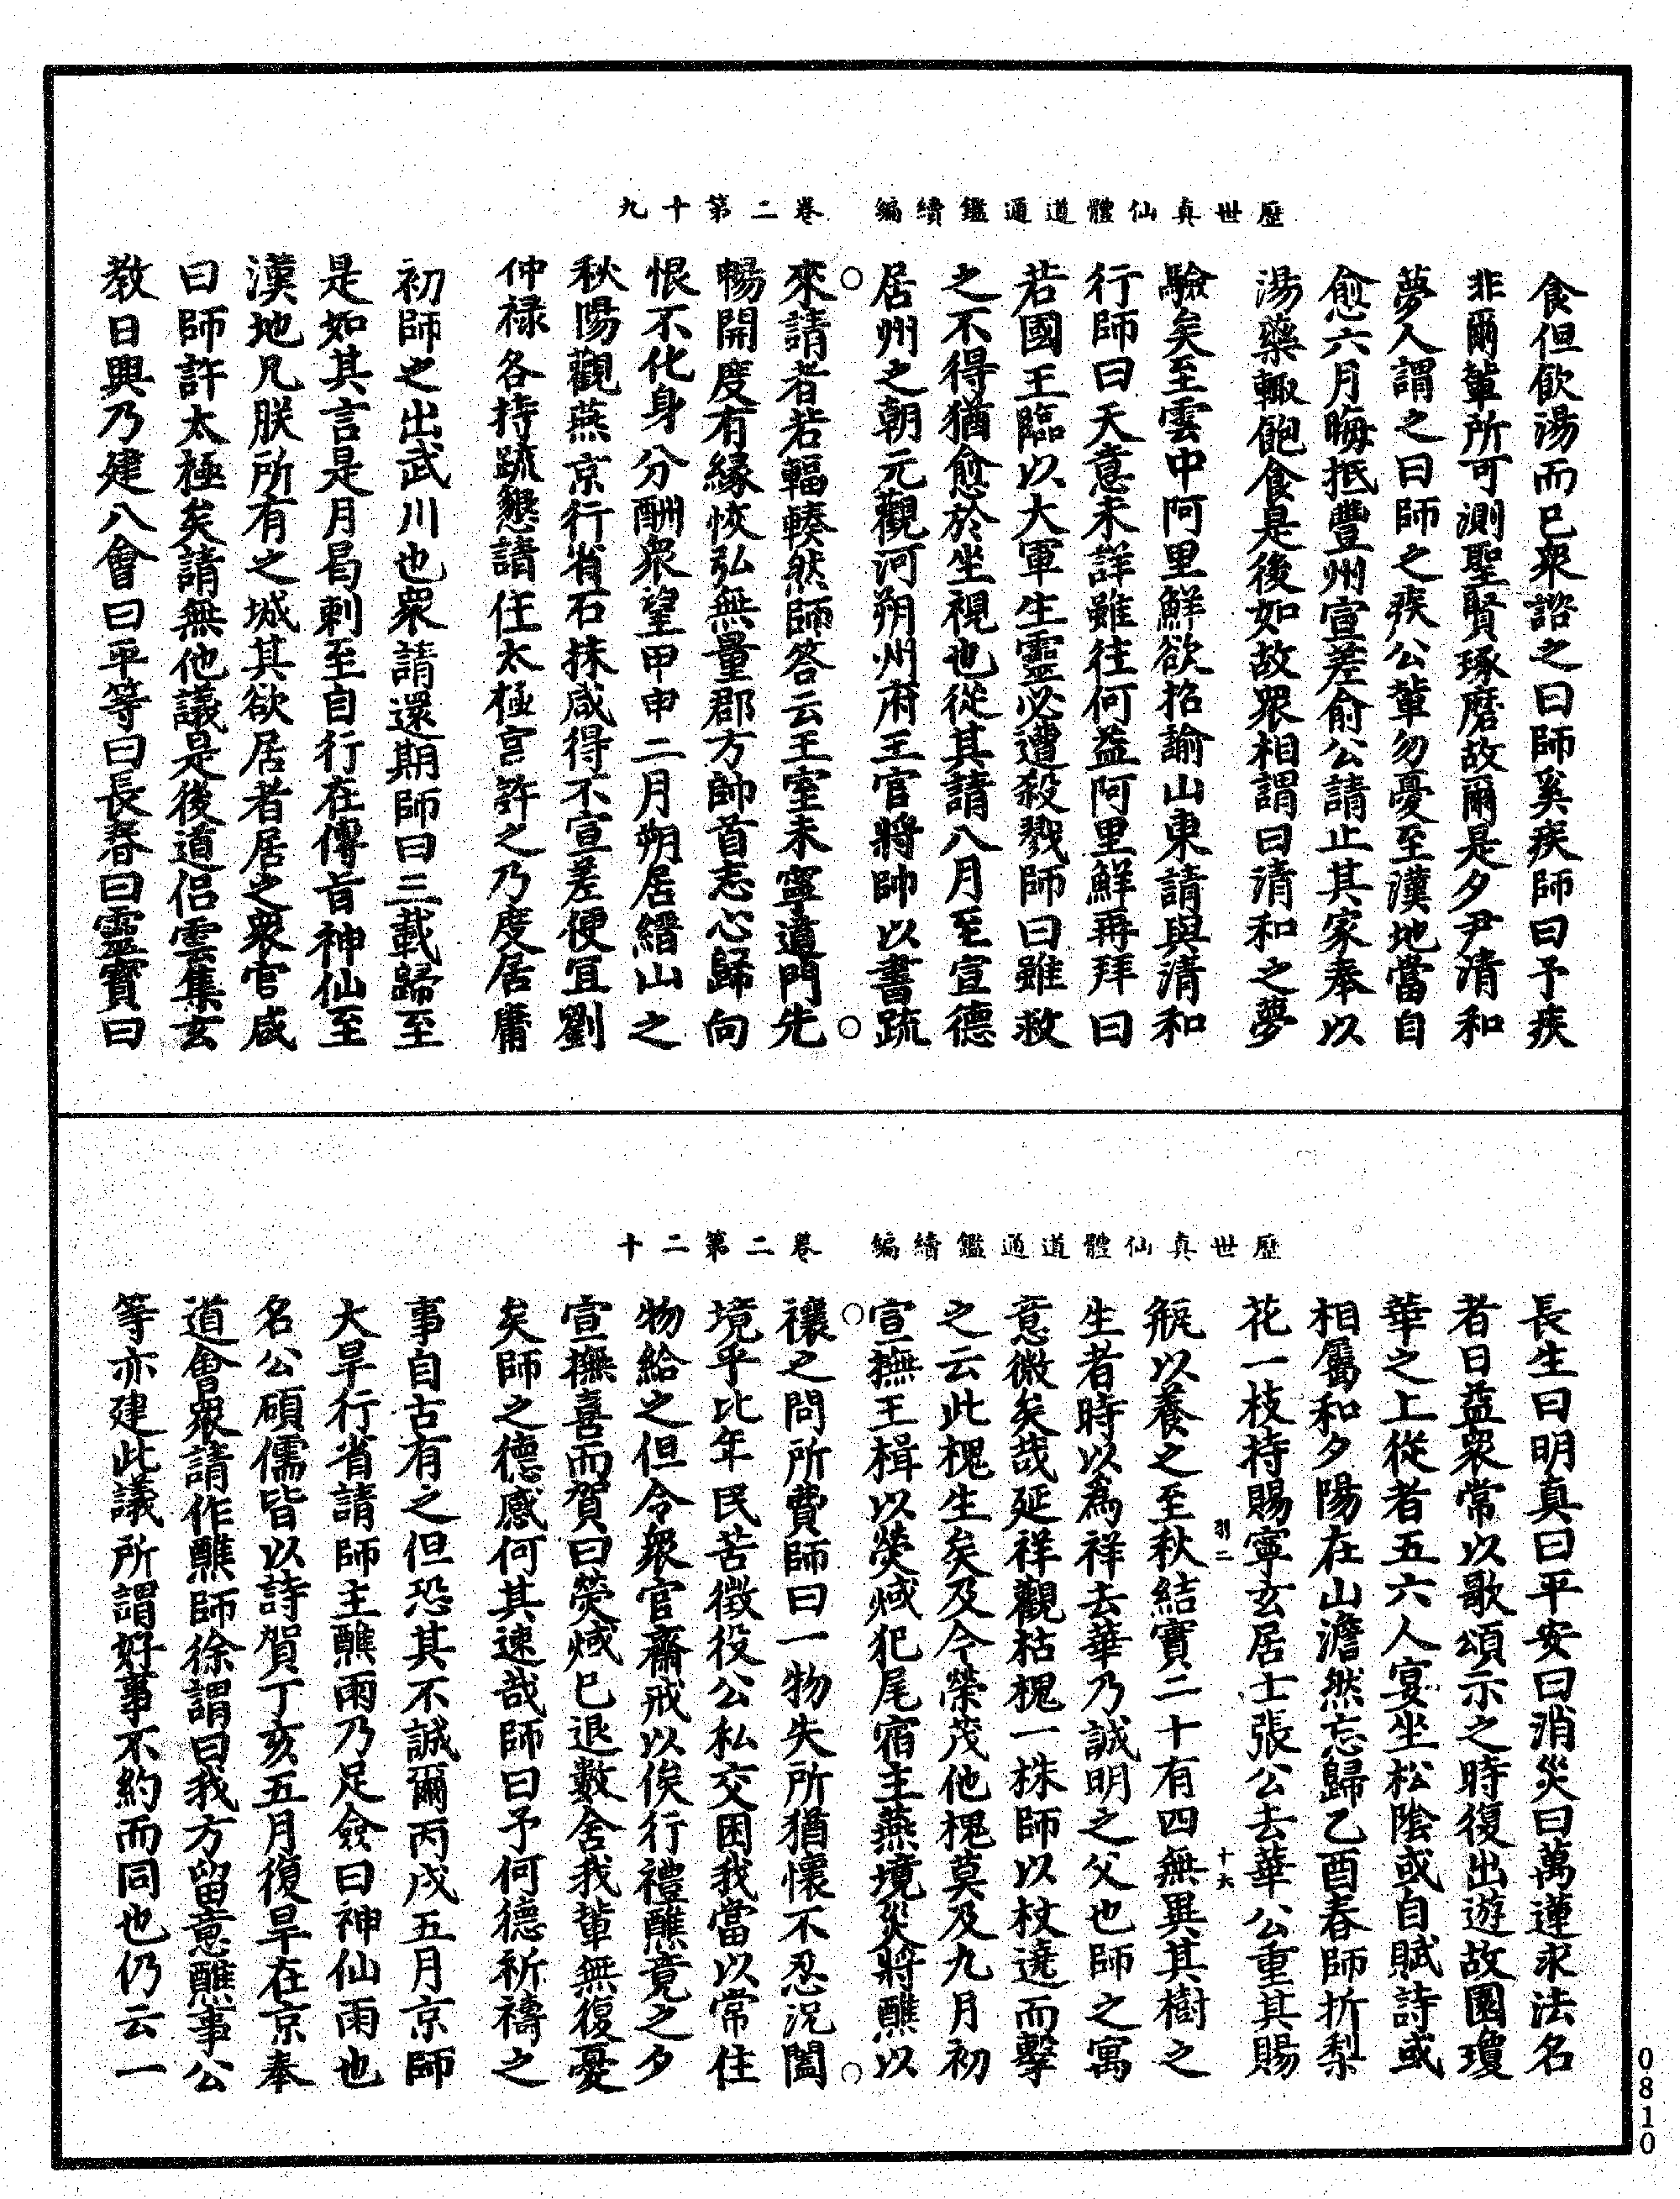 歷世真仙體道通鑑續編　卷二第十九
食但飲湯而已衆諮之曰師奚疾師曰予疾
非爾輩所可測聖賢琢磨故爾是夕尹清和
夢人謂之曰師之疾公輩勿憂至漢地當自
愈六月晦抵豐州宣差俞公請止其家奉以
湯藥輙飽食是後如故衆相謂曰清和之夢
驗矣至雲中阿里鮮欲招諭山東請與清和
行師曰天意未詳雖往何益阿里鮮再拜曰
若國王臨以大軍生靈必遭殺戮師曰雖救
之不得猶愈於坐視也從其請八月至宣德
居州之朝元觀河朔州府王官將帥以書疏
來請者若輻輳然師答云王室未寧道門先
暢開度有緣恢弘無量郡方帥首志心歸向
恨不化身分酬衆望甲申二月朔居縉山之
秋陽觀燕京行省石抹咸得不宣差便宜劉
仲祿各持疏懇請住太極宮許之乃度居庸
初師之出武川也衆請還期師曰三載歸至
是如其言是月曷剌至自行在傳旨神仙至
漢地凡朕所有之城其欲居者居之衆官咸
曰師許太極矣請無他議是後道侶雲集玄
教日興乃建八會曰平等曰長春曰靈寶曰
歷世真仙體道通鑑續編　卷二第二十
長生曰明真曰平安曰消災曰萬蓮求法名
者日益衆常以歌頌示之時復出遊故園瓊
華之上從者五六人宴坐松陰或自賦詩或
相屬和夕陽在山澹然忘歸乙酉春師折梨
花一枝持賜寧玄居士張公去華公重其賜
羽二　十六
瓶以養之至秋結實二十有四無異其樹之
生者時以為祥去華乃誠明之父也師之寓
意微矣哉延祥觀枯槐一株師以杖遶而擊
之云此槐生矣及今榮茂他槐莫及九月初
宣撫王楫以熒惑犯尾宿主燕境災將醮以
禳之問所費師曰一物失所猶懷不忍況闔
境乎比年民苦徵役公私交困我當以常住
物給之但令衆官齋戒以俟行禮醮竟之夕
宣撫喜而賀曰熒惑已退數舍我輩無復憂
矣師之德感何其速哉師曰予何德祈禱之
事自古有之但恐其不誠爾丙戌五月京師
大旱行省請師主醮雨乃足僉曰神仙雨也
名公碩儒皆以詩賀丁亥五月復旱在京奉
道會衆請作醮師徐謂曰我方留意醮事公
等亦建此議所謂好事不約而同也仍云一
0810